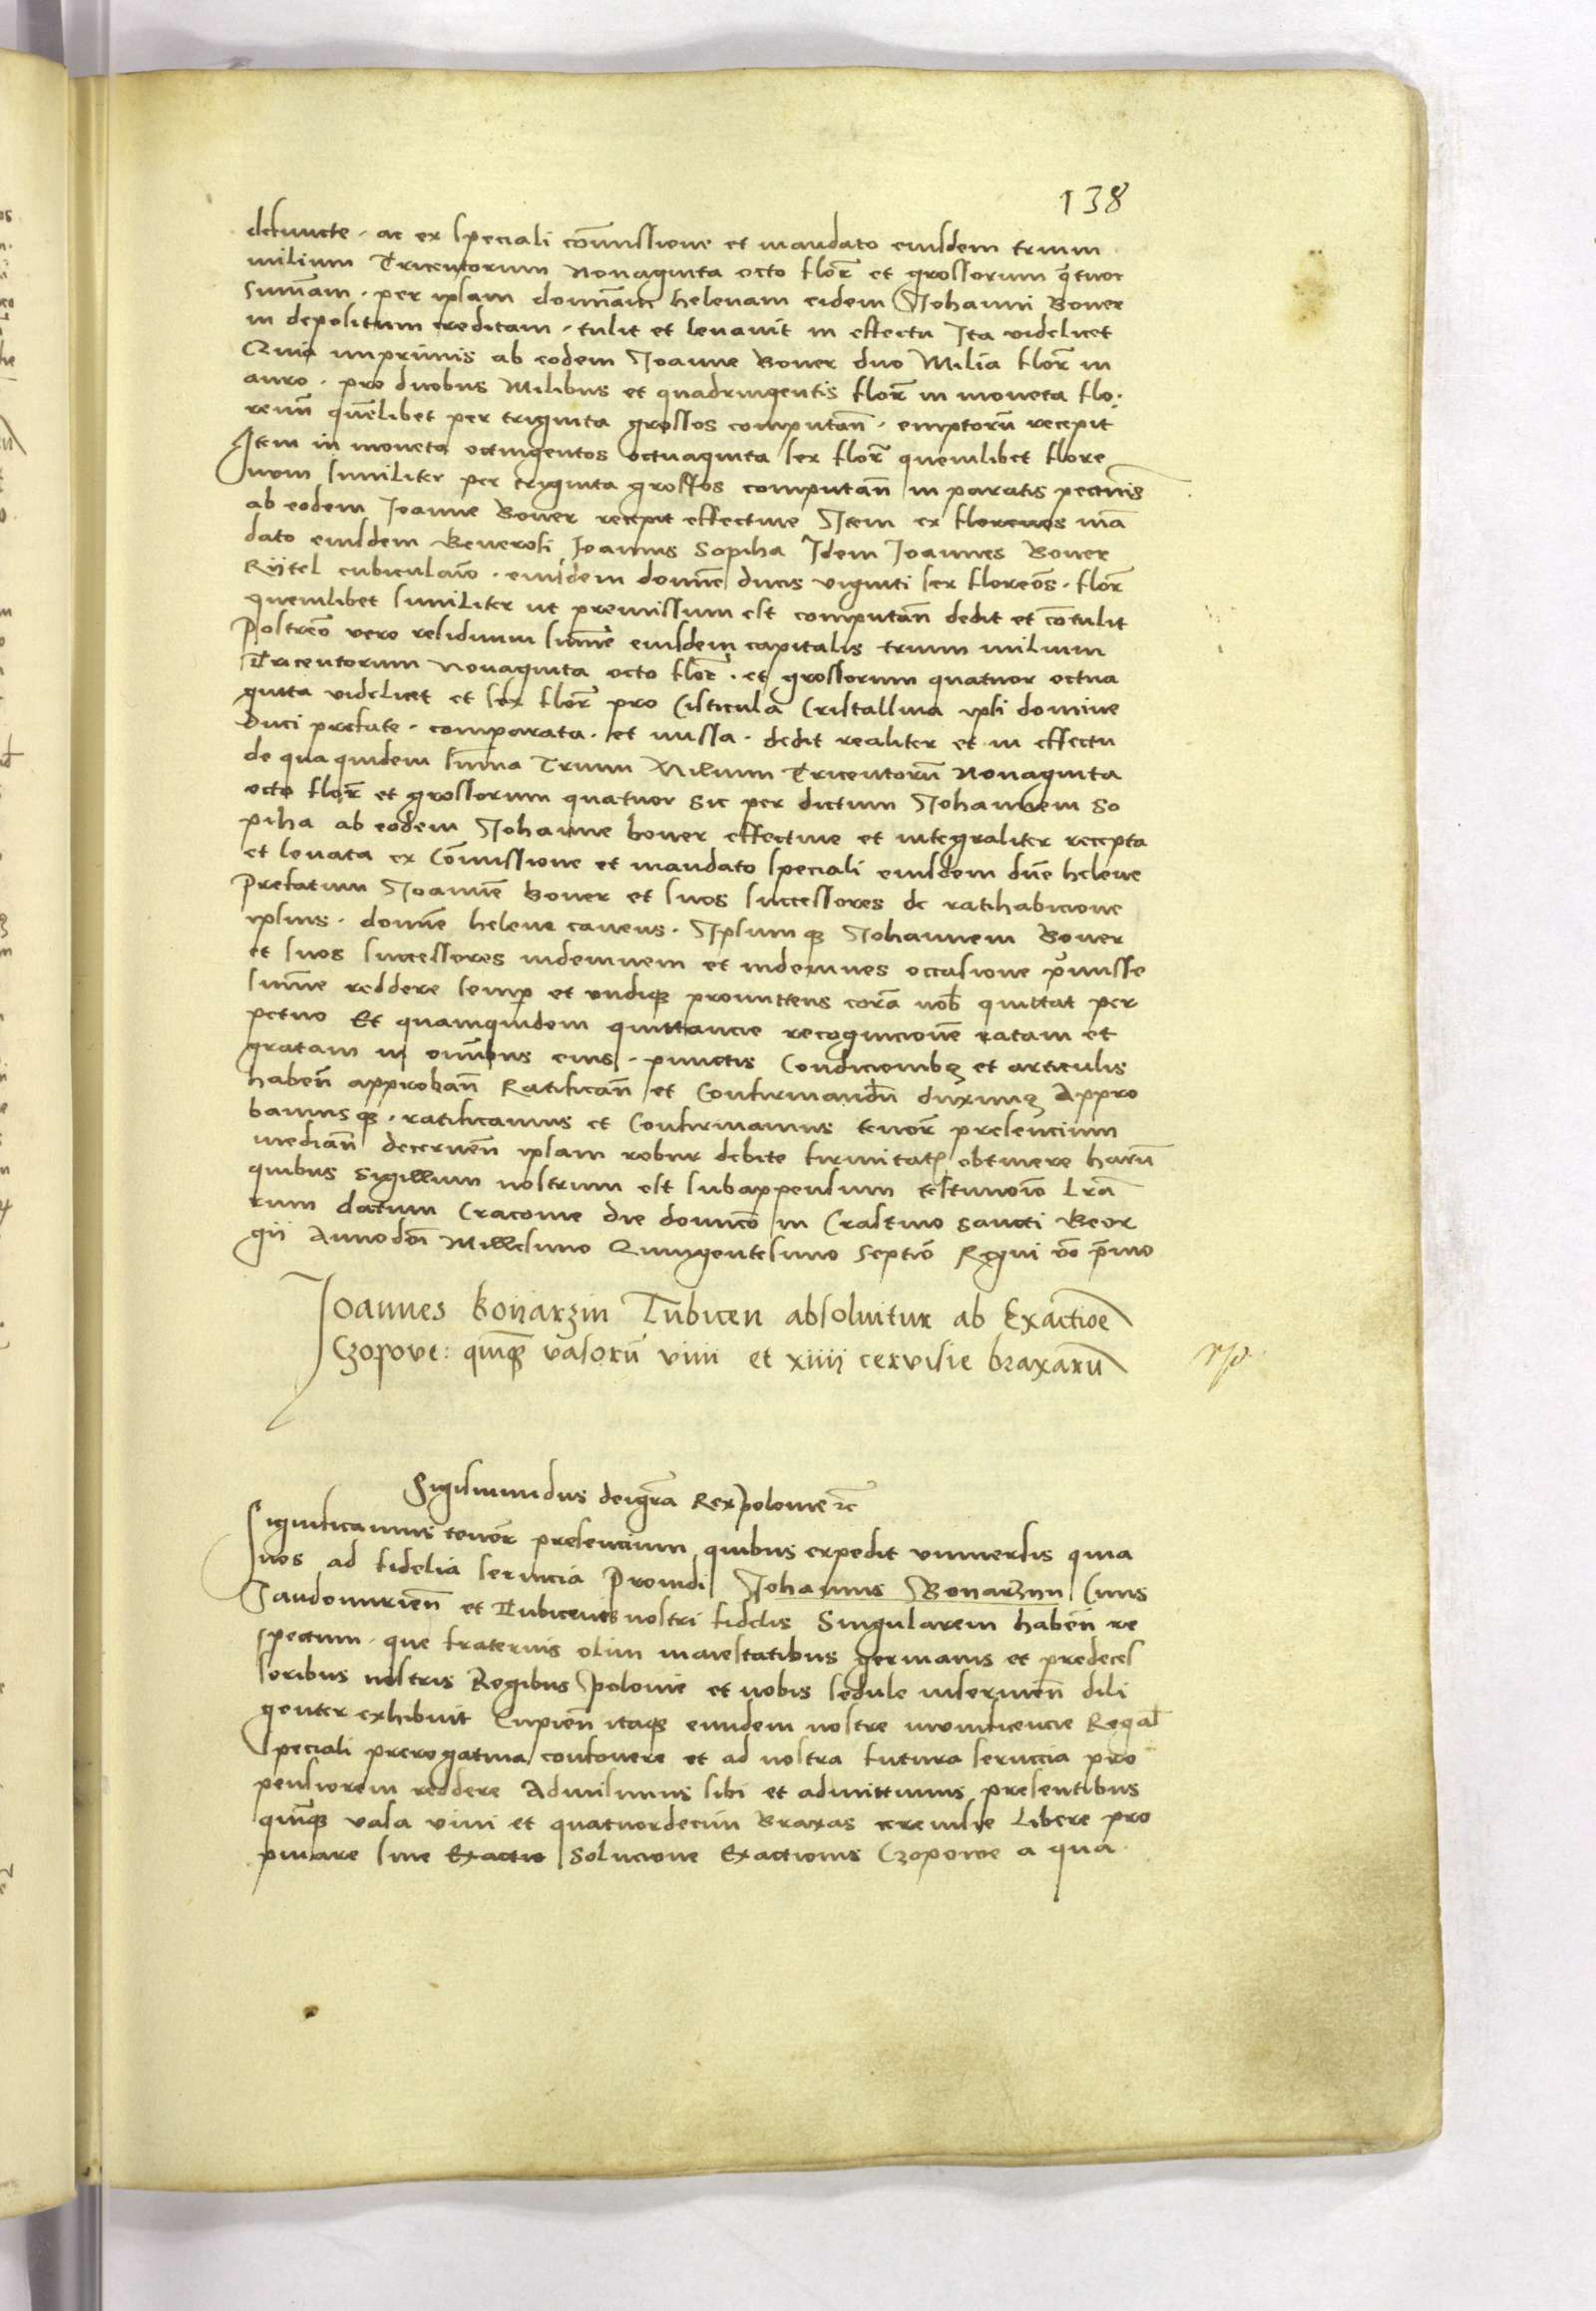 138
defuncte · ac ex speciali com̄issione et mandato eiusdem trium
milium Tricentorum Nonaginta octo flor̄ et grossorum q̄tuor
Sum̄am · per ipsam domīam helenam eidem Johanni Boner
in depositum creditam · tulit et leuauit in effectu Ita videlicet
Quia imprimis ab eodem Joanne Boner duo Milia flor̄ in
auro · pro duobus Milibus et quadringentis flor̄ in moneta flo-
renū quēlibet per triginta grossos computan̄ · emptorū recepit
Item in moneta octingentos octuaginta sex flor̄ quemlibet flore
num similiter per triginta grossos computan̄ in paratis pecunīs
ab eodem Joanne Boner recepit effectiue Item ex florenos mā
dato eiusdem Generosi Joannis Sapiha Idem Joannes Boner
Rÿtel cubiculaīo · eiusdem domīe ducis viginti sex floreōs · flor̄
quemlibet similiter ut premissum est computan̄ dedit et cōtulit
Postreō vero residuum sum̄e eiusdem capitalis trium milium
Tricentorum Nonaginta octo flor̄ · et grossorum quatuor octua
ginta videlicet et sex flor̄ pro Cisticula Cristallina ipsi domine
Duci prefate · comparata · et missa · dedit realiter et in effectu
de qua quidem sum̄a Trium Milium Tricentorū Nonaginta
octo flor̄ et grossorum quatuor sic per dictum Johannem So
piha ab eodem Johanne boner effectiue et integraliter recepta
et leuata ex Com̄issione et mandato speciali eiusdem dn̄e helene
Prefatum Joannē Boner et suos successores de ratihabicione
ipsius · domīe helene cauens · Ipsumq; Johannem Boner
et suos successores indemnem et indemnes occasione p̄misse
sum̄e reddere semp̱ et vndiq; promittens corā nob̄ quittat per
petuo Et quamquidem quittancie recognicionē ratam et
gratam in om̄ibus eius · punctis Condicionib; et articulis
haben̄ approban̄ Ratifican̄ et Confirmandū duxim; Appro
bamusq; · ratificamus et Confirmamus tenor̄ presencium
median̄ decernen̄ ipsam robur debite firmitatis obtinere harū
quibus Sigillum nostrum est subappensum testimoīo Lrā
rum datum Cracouie die domico in Crastino sancti Geor
gii Anno doī Millesimo Quingentesimo Septiō Regni v̄o p̄mo
Joannes Bonarzin Tubicen absoluitur ab Exactioe
Czopoue: quinq; vasorū vini et xiiij ceruisie braxarū
Sigismundus dei gr̄a Rex Polonie ꝛc̄
Significamus tenor̄ presencium quibus expedit vniuersis quia
nos ad fidelia seruicia Prouidi Johannis Bonarzinn Ciuis
Sandomirien̄ et Tubicenis nostri fidelis Singularem haben̄ re
spectum · que fraternis olim maiestatibus germanis et predeces
soribus nostris Regibus Polonie et nobis sedule inseruien̄ dili
genter exhibuit Cupien̄ itaq; eundem nostre munificencie Regal̄
speciali prerogatiua confouere et ad nostra futura seruicia pro
pensiorem reddere Admisimus sibi et admittimus presentibus
quinq; vasa vini et quatuordecim Braxas ceruisie Libere pro
pinare sine Exactio Solucione Exactionis Czopowe a qua